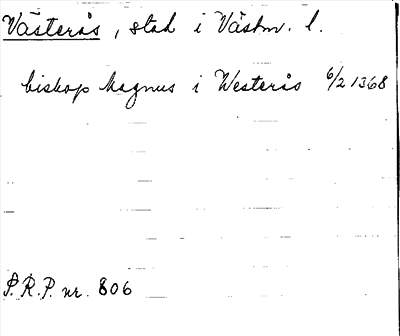 Västerås, stad i Västm. l.
biskop Magnus i Westerås 6/2 1368
S.R.P. nr. 806